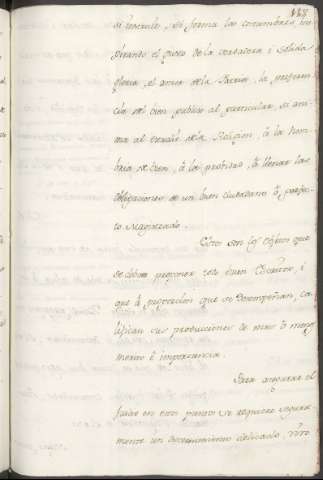 118
si instruie, si forma las costumbres ins
pirando el gusto de la verdadera i sólida
gloria, el amor de la Patria, la preferen
cia del bien publico al particular, si ani
ma al exercicio de la Religion, á la hom
bria de bien, á la probidad, á llenar las
obligaciones de un buen ciudadano ó perfec
to Magistrado.
Estos son los objetos que
se deben proponer todo buen Escritor, i
que á proporcion que se desempeñan, ca
lifican sus producciones de mas ó menos
merito é importancia.
Para asegurar el
juicio en este punto se requiere segura
mente un discernimiento delicado, otro